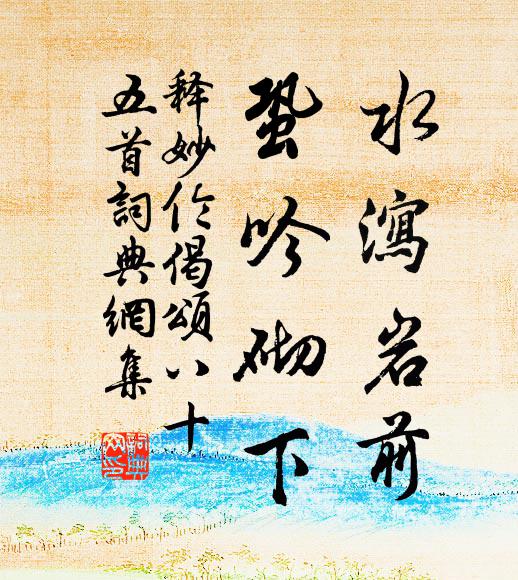 水瀉岩前
蛩吟砌下
释妙伦偈頌八十
五首詞典網集